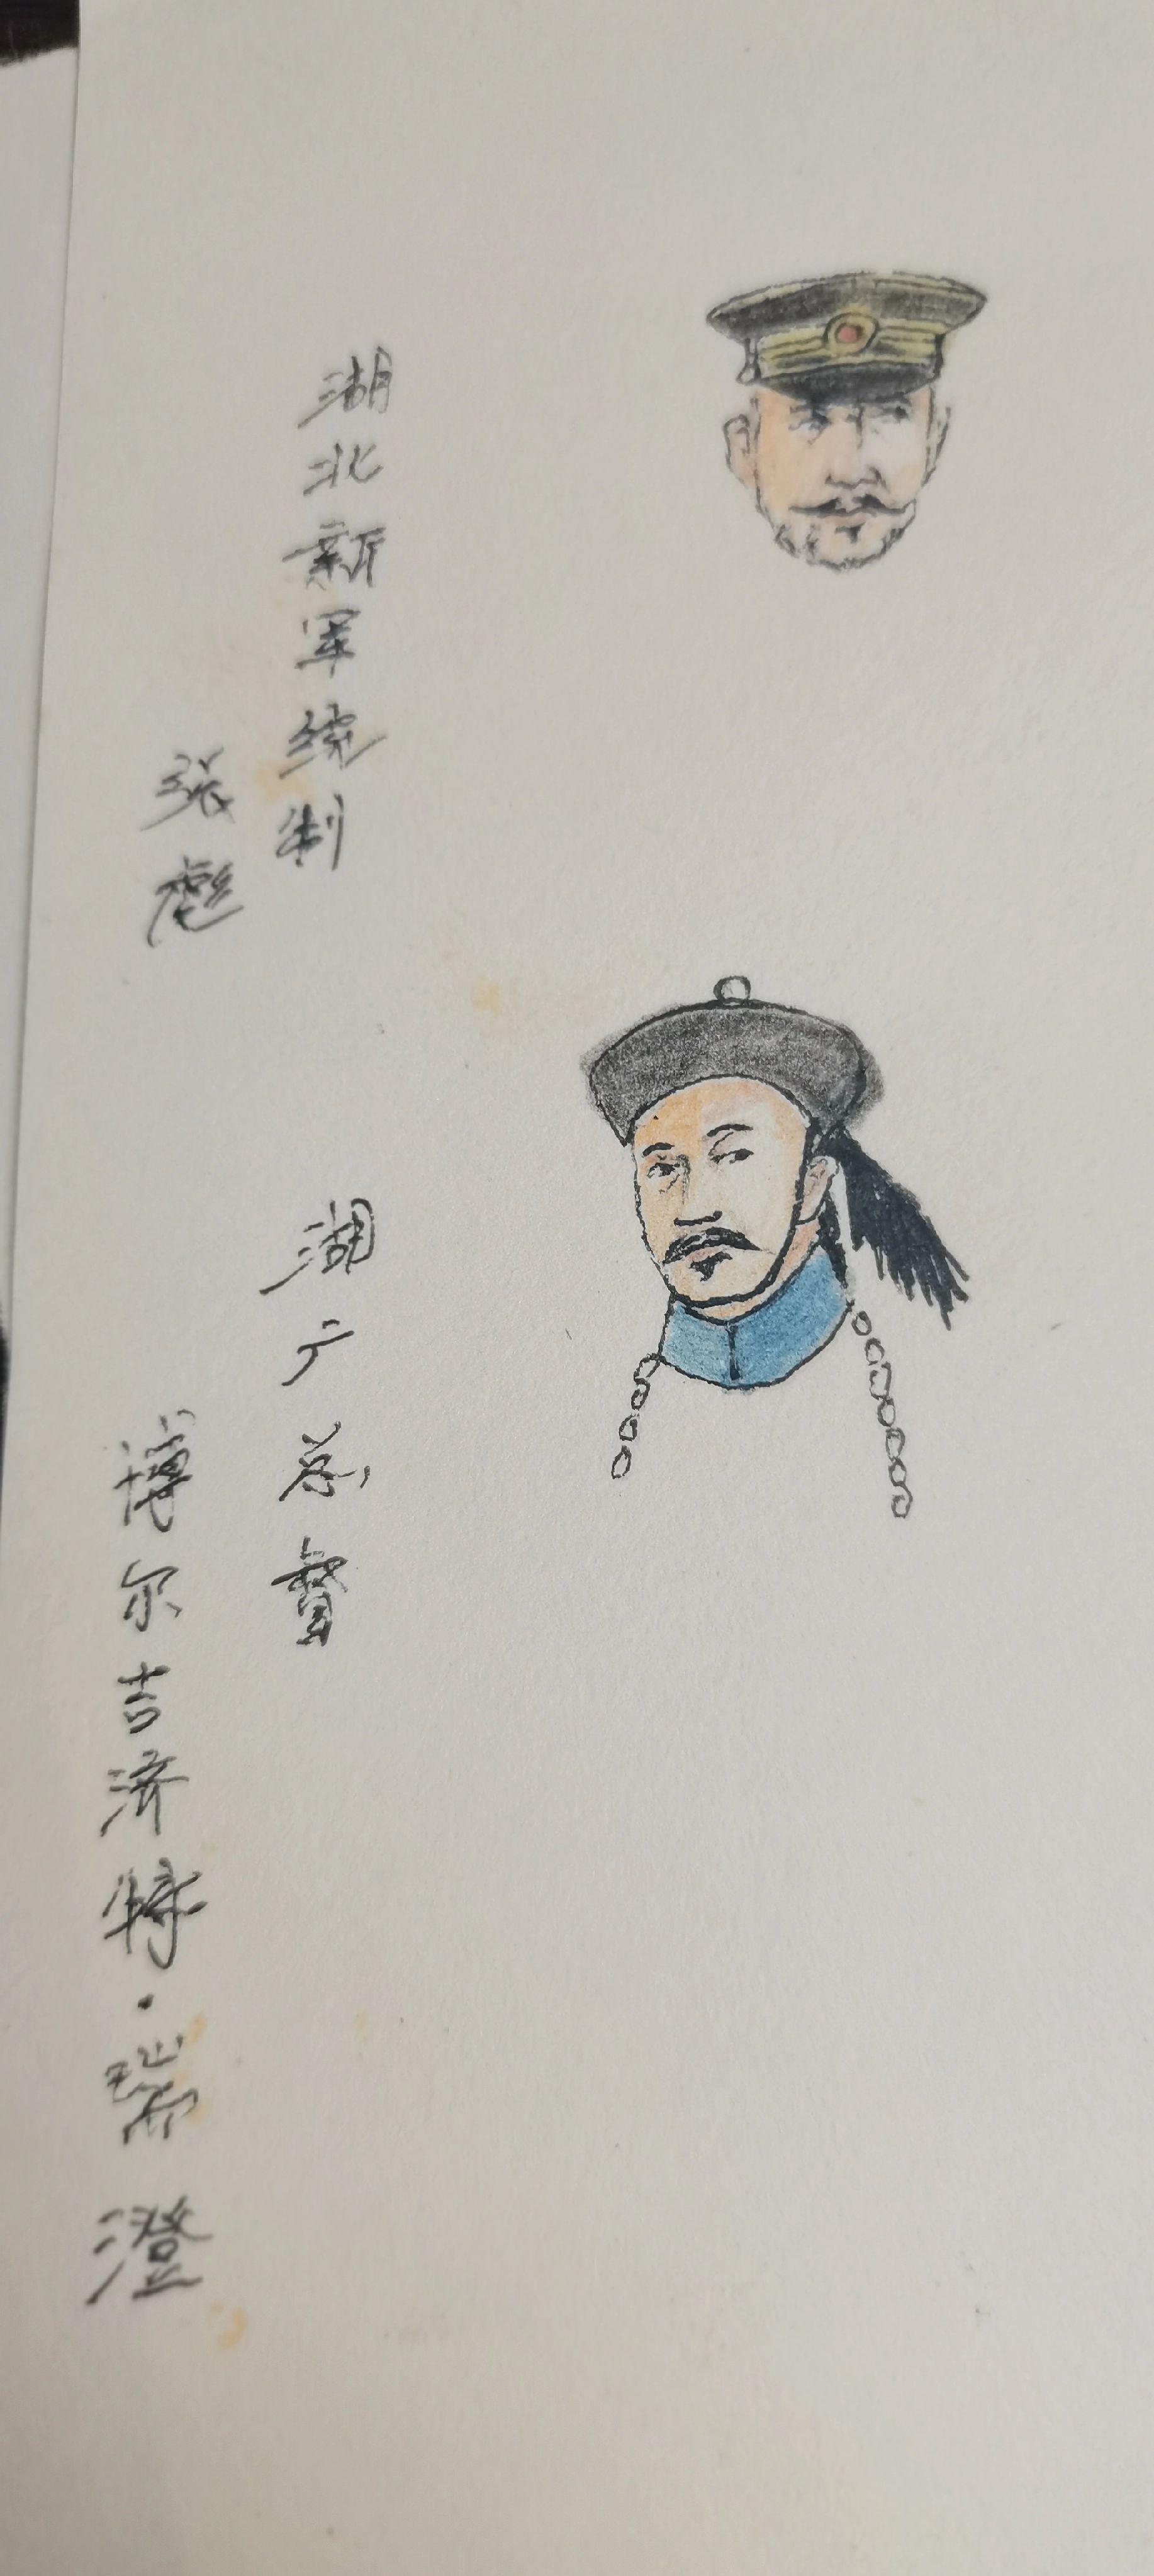 湖北新军统制
张彪
湖广总督
博尔吉济特·瑞澄